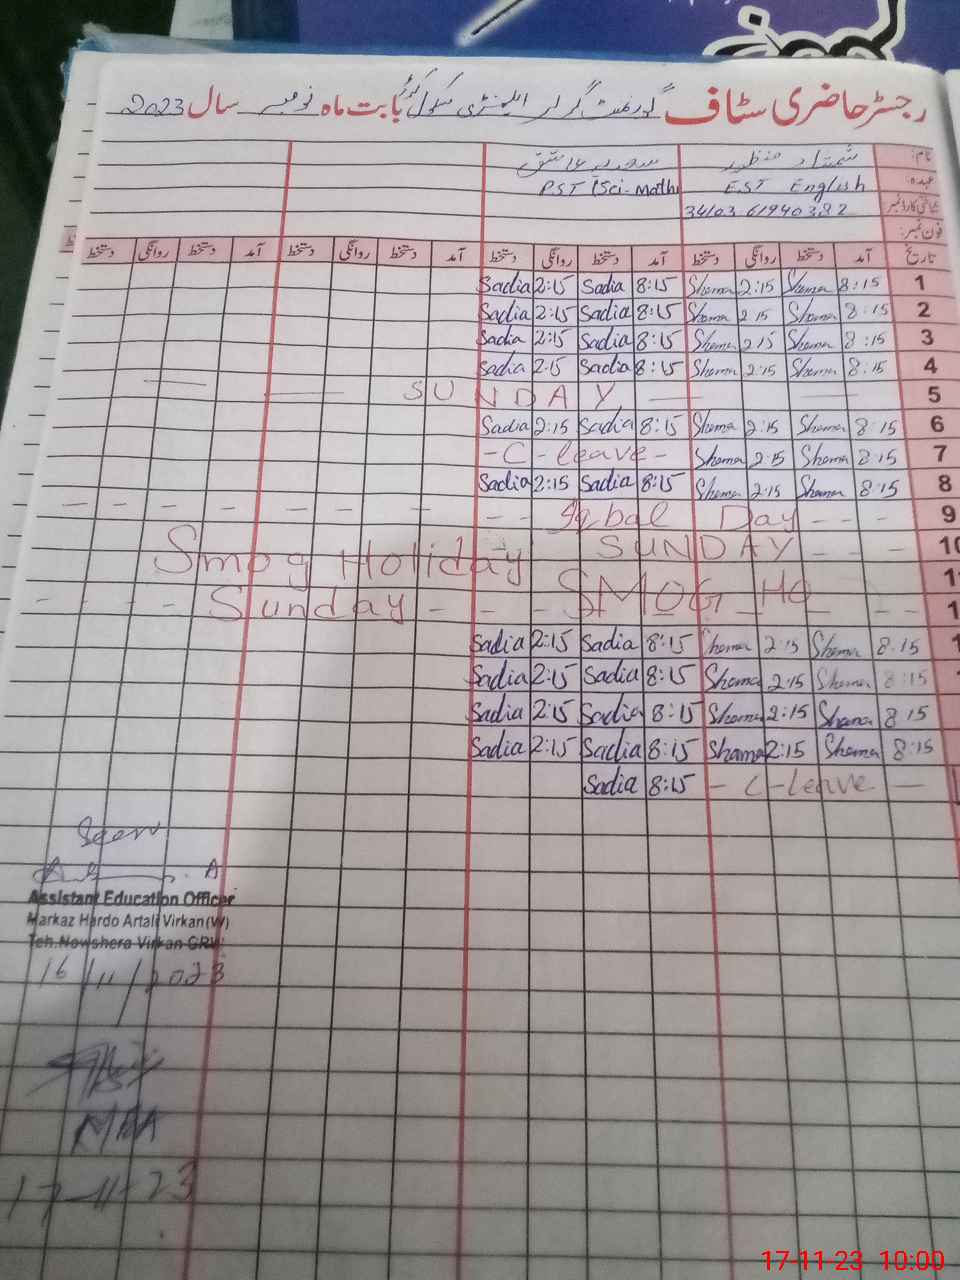 رجسٹر حاضری سٹاف گورنمنٹ گرلز ایلیمنٹری سکول بابت ماہ نومبر سال 2023
نام: شمشاد منظور سعدیہ عاشق
عہدہ: EST English PST (Sci-Math
شناختی کارڈ نمبر 34103 61940382
فون نمبر:
تاریخ آمد دستخط روانگی دستخط آمد دستخط روانگی دستخط آمد دستخط روانگی دستخط آمد دستخط روانگی دستخط
Sadia 2:15 Sadia 8:15 Shama 2:15 Shama 8:15 1
Sadia 2:15 Sadia 8:15 Shama 2:15 Shama 8:15 2
Sadia 2:15 Sadia 8:15 Shama 2:15 Shama 8:15 3
Sadia 2:15 Sadia 8:15 Shama 2:15 Shama 8:15 4
SUNDAY 5
Sadia 2:15 Sadia 8:15 Shama 2:15 Shama 8:15 6
-C-leave- Shama 2:15 Shama 8:15 7
Sadia 2:15 Sadia 8:15 Shama 2:15 Shama 8:15 8
Iqbal Day 9
Smog Holiday SUNDAY 10
Sunday SMOG HO
Sadia 2:15 Sadia 8:15 Shama 2:15 Shama 8:15
Sadia 2:15 Sadia 8:15 Shama 2:15 Shama 8:15
Sadia 2:15 Sadia 8:15 Shama 2:15 Shama 8:15
Sadia 2:15 Sadia 8:15 Shama 2:15 Shama 8:15
Sadia 8:15 - C-leave -
Seen
Assistant Education Officer
Markaz Hardo Artali Virkan (W)
Teh. Nowshera Virkan GRW.
16/11/2023
MEA
17-11-23
17-11-23 10:00